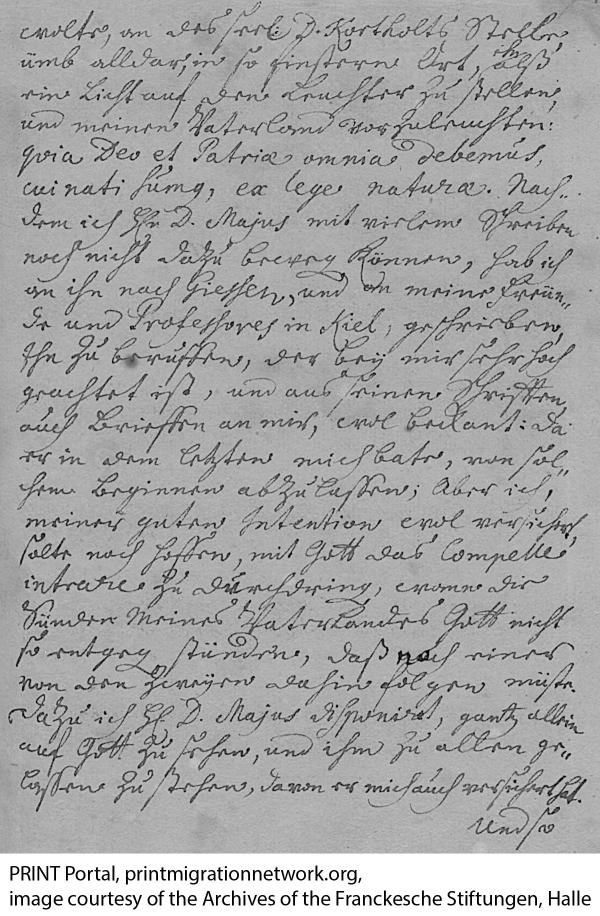 wolte, an des seel: D. Kortholts Stelle
ümb alldar, in so finstern Ort, als
ein Licht auf den Leuchter zu stellen,
und meinen Vaterland vorzuleuchten:
qvia Deo et Patriæ omnia debemus,
cui nati sumg, ex lege naturæ. Nach-
dem ich Hh D. Majus mit vielem Schreiben
noch nicht dazu beweg können, hab ich
an ihn nach Giessen, und an meine Freün-
de und Professores in Kiel, geschrieben,
Ihn zu beruffen, der bey mir sehr hoch
geachtet ist, und aus seinen Schrifften,
auch Brieffen an mir, wol bekant: Da
er in dem letzten mich bate, von sol-
chem Beginnen abzulassen; Aber ich,
meiner guten Intention wol versichert,
solte noch hoffen, mit Gott das Compelle
intrare zu durchdring, wann die
Sünden Meines Vaterlandes Gott nicht
so entgeg stünden, daß noch einer
von den zweyen dahin folgen müste.
Dazu ich Hh D. Majus disponirt, gantz allein
auf Gott zu sehen, und ihm zu allen ge-
lassen zu stehen, davon er mich auch versichert hat.
Und so
PRINT Portal, printmigrationnetwork.org,
image courtesy of the Archives of the Franckesche Stiftungen, Halle